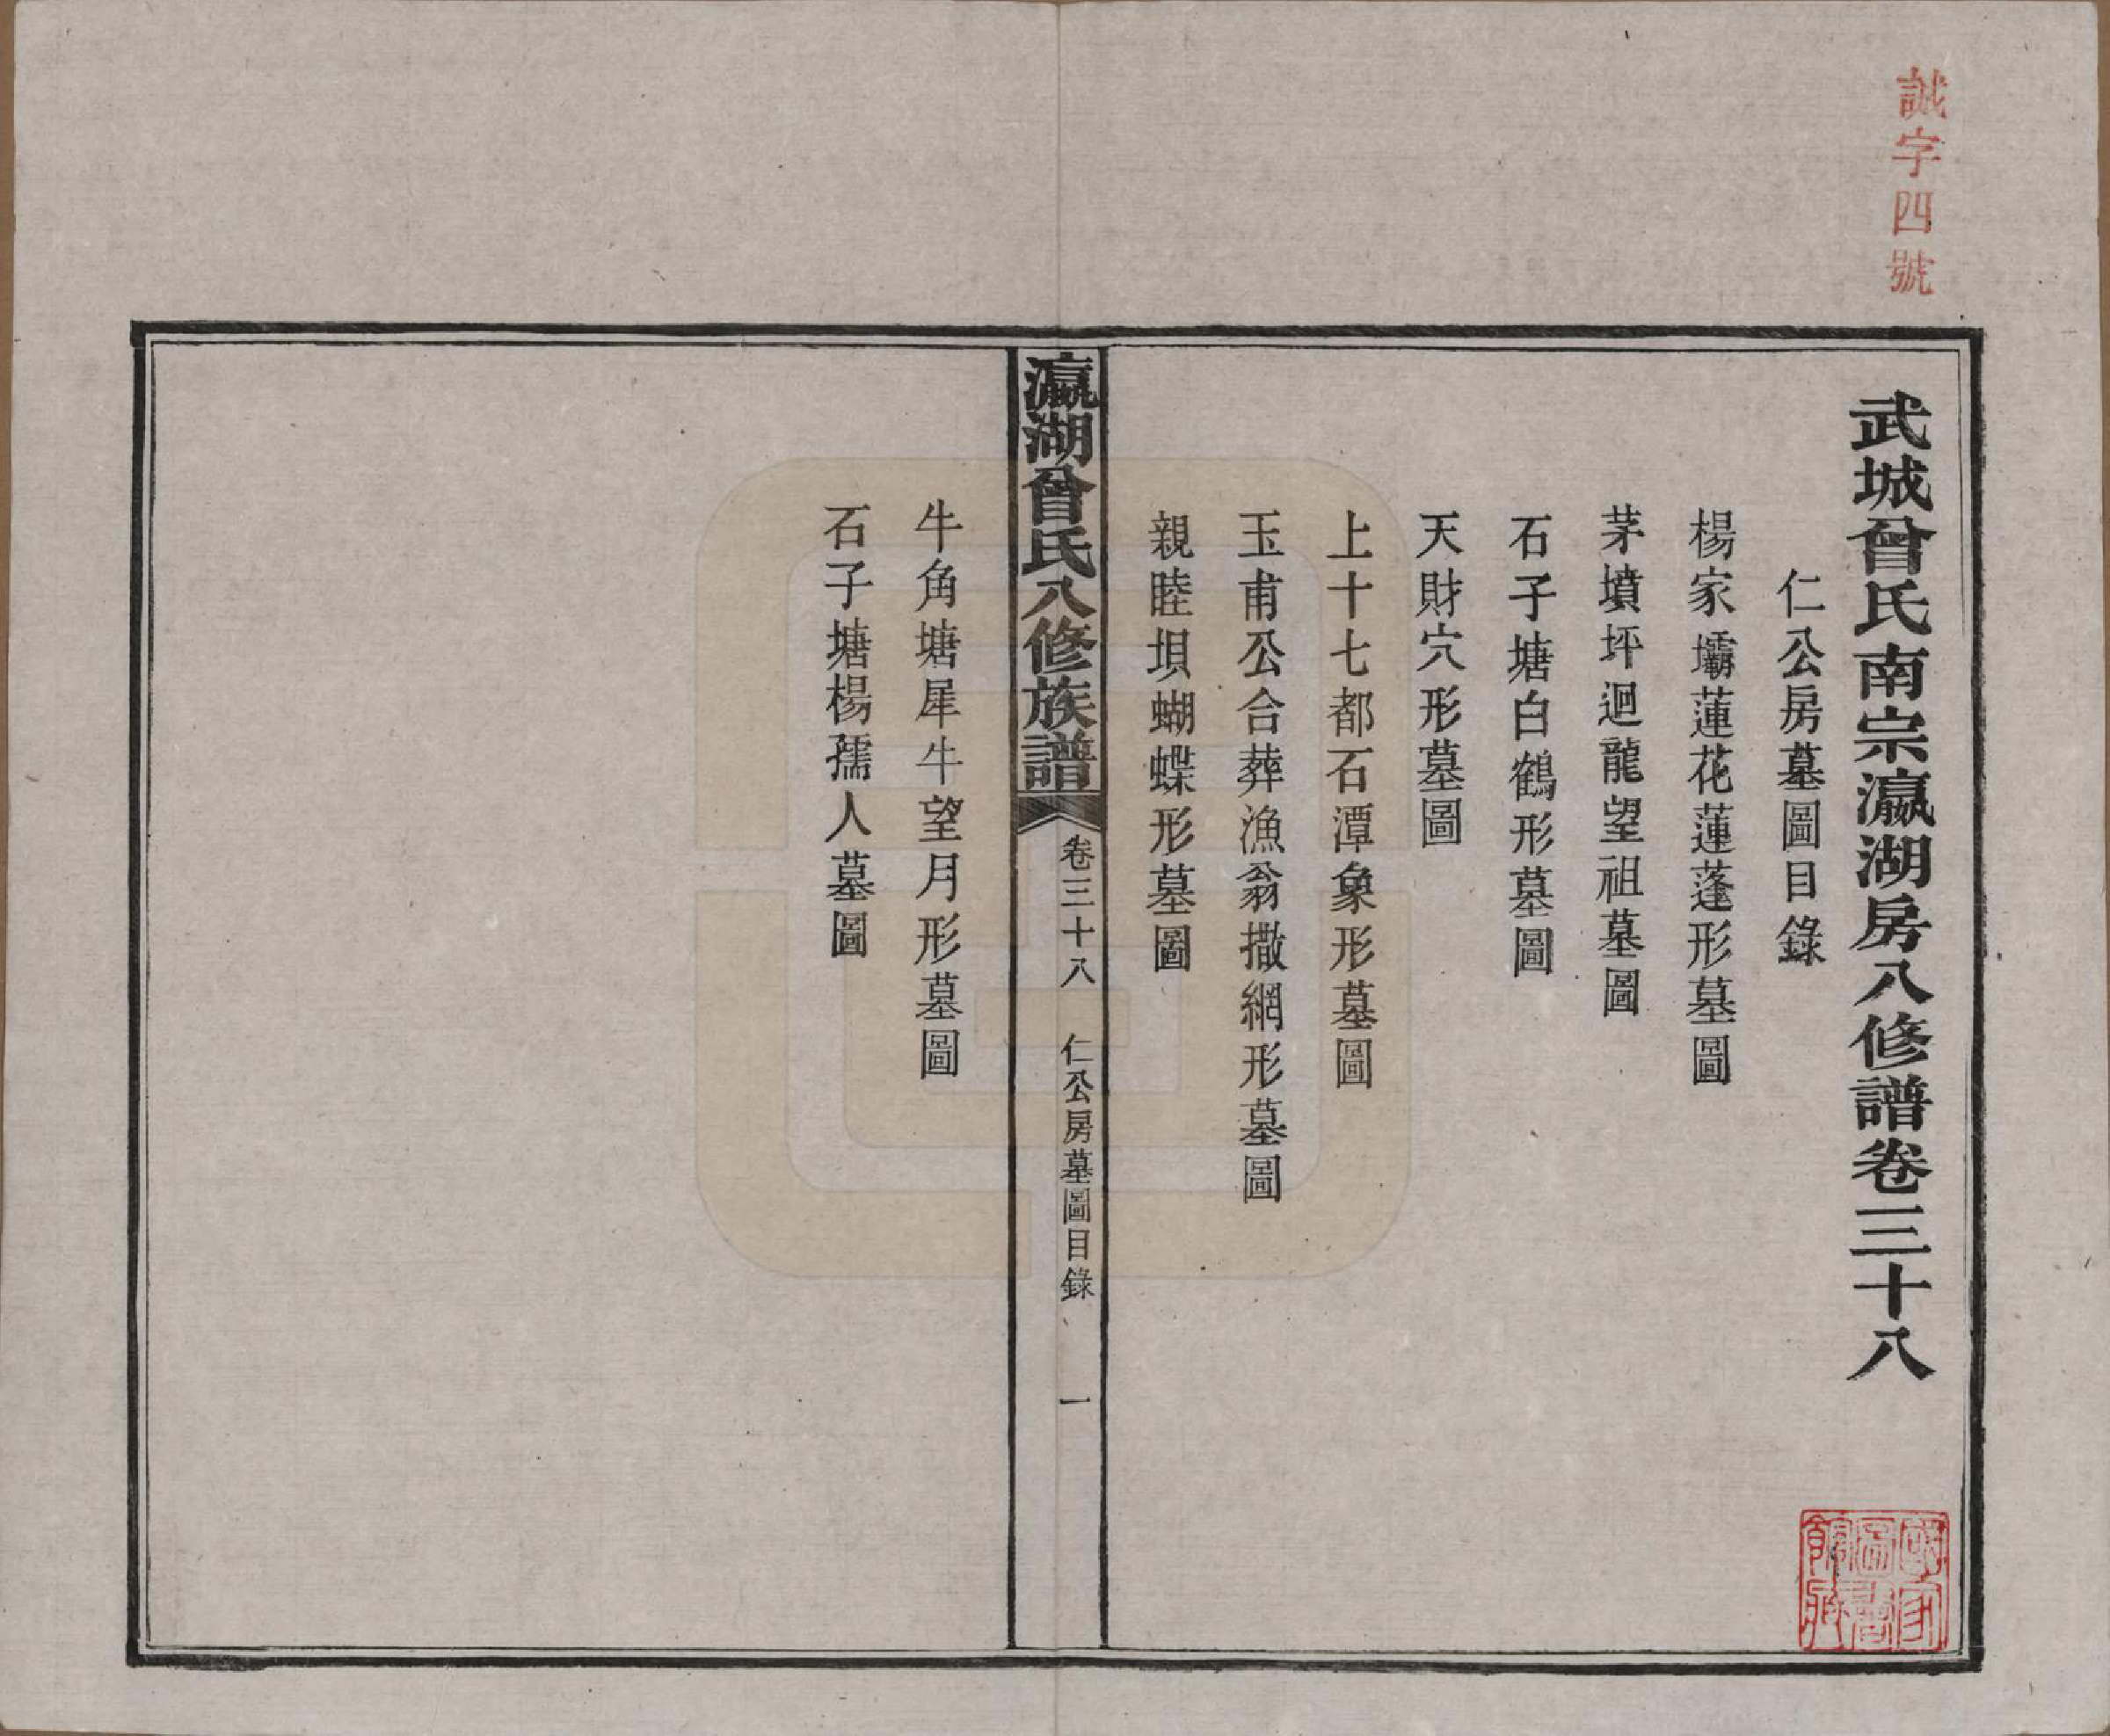 誠字四號
武城曾氏南宗瀛湖房八修譜卷三十八
仁公房墓圖目錄
楊家壩蓮花蓮蓬形墓圖
茅墳坪迴龍望祖墓圖
石子塘白鶴形墓圖
天財穴形墓圖
上十七都石潭象形墓圖
玉甫公合葬漁翁撒網形墓圖
親睦垻蝴蝶形墓圖
瀛湖曾氏八修族譜
卷三十八 仁公房墓圖目錄 一
牛角塘犀牛望月形墓圖
石子塘楊孺人墓圖
國家圖書館藏